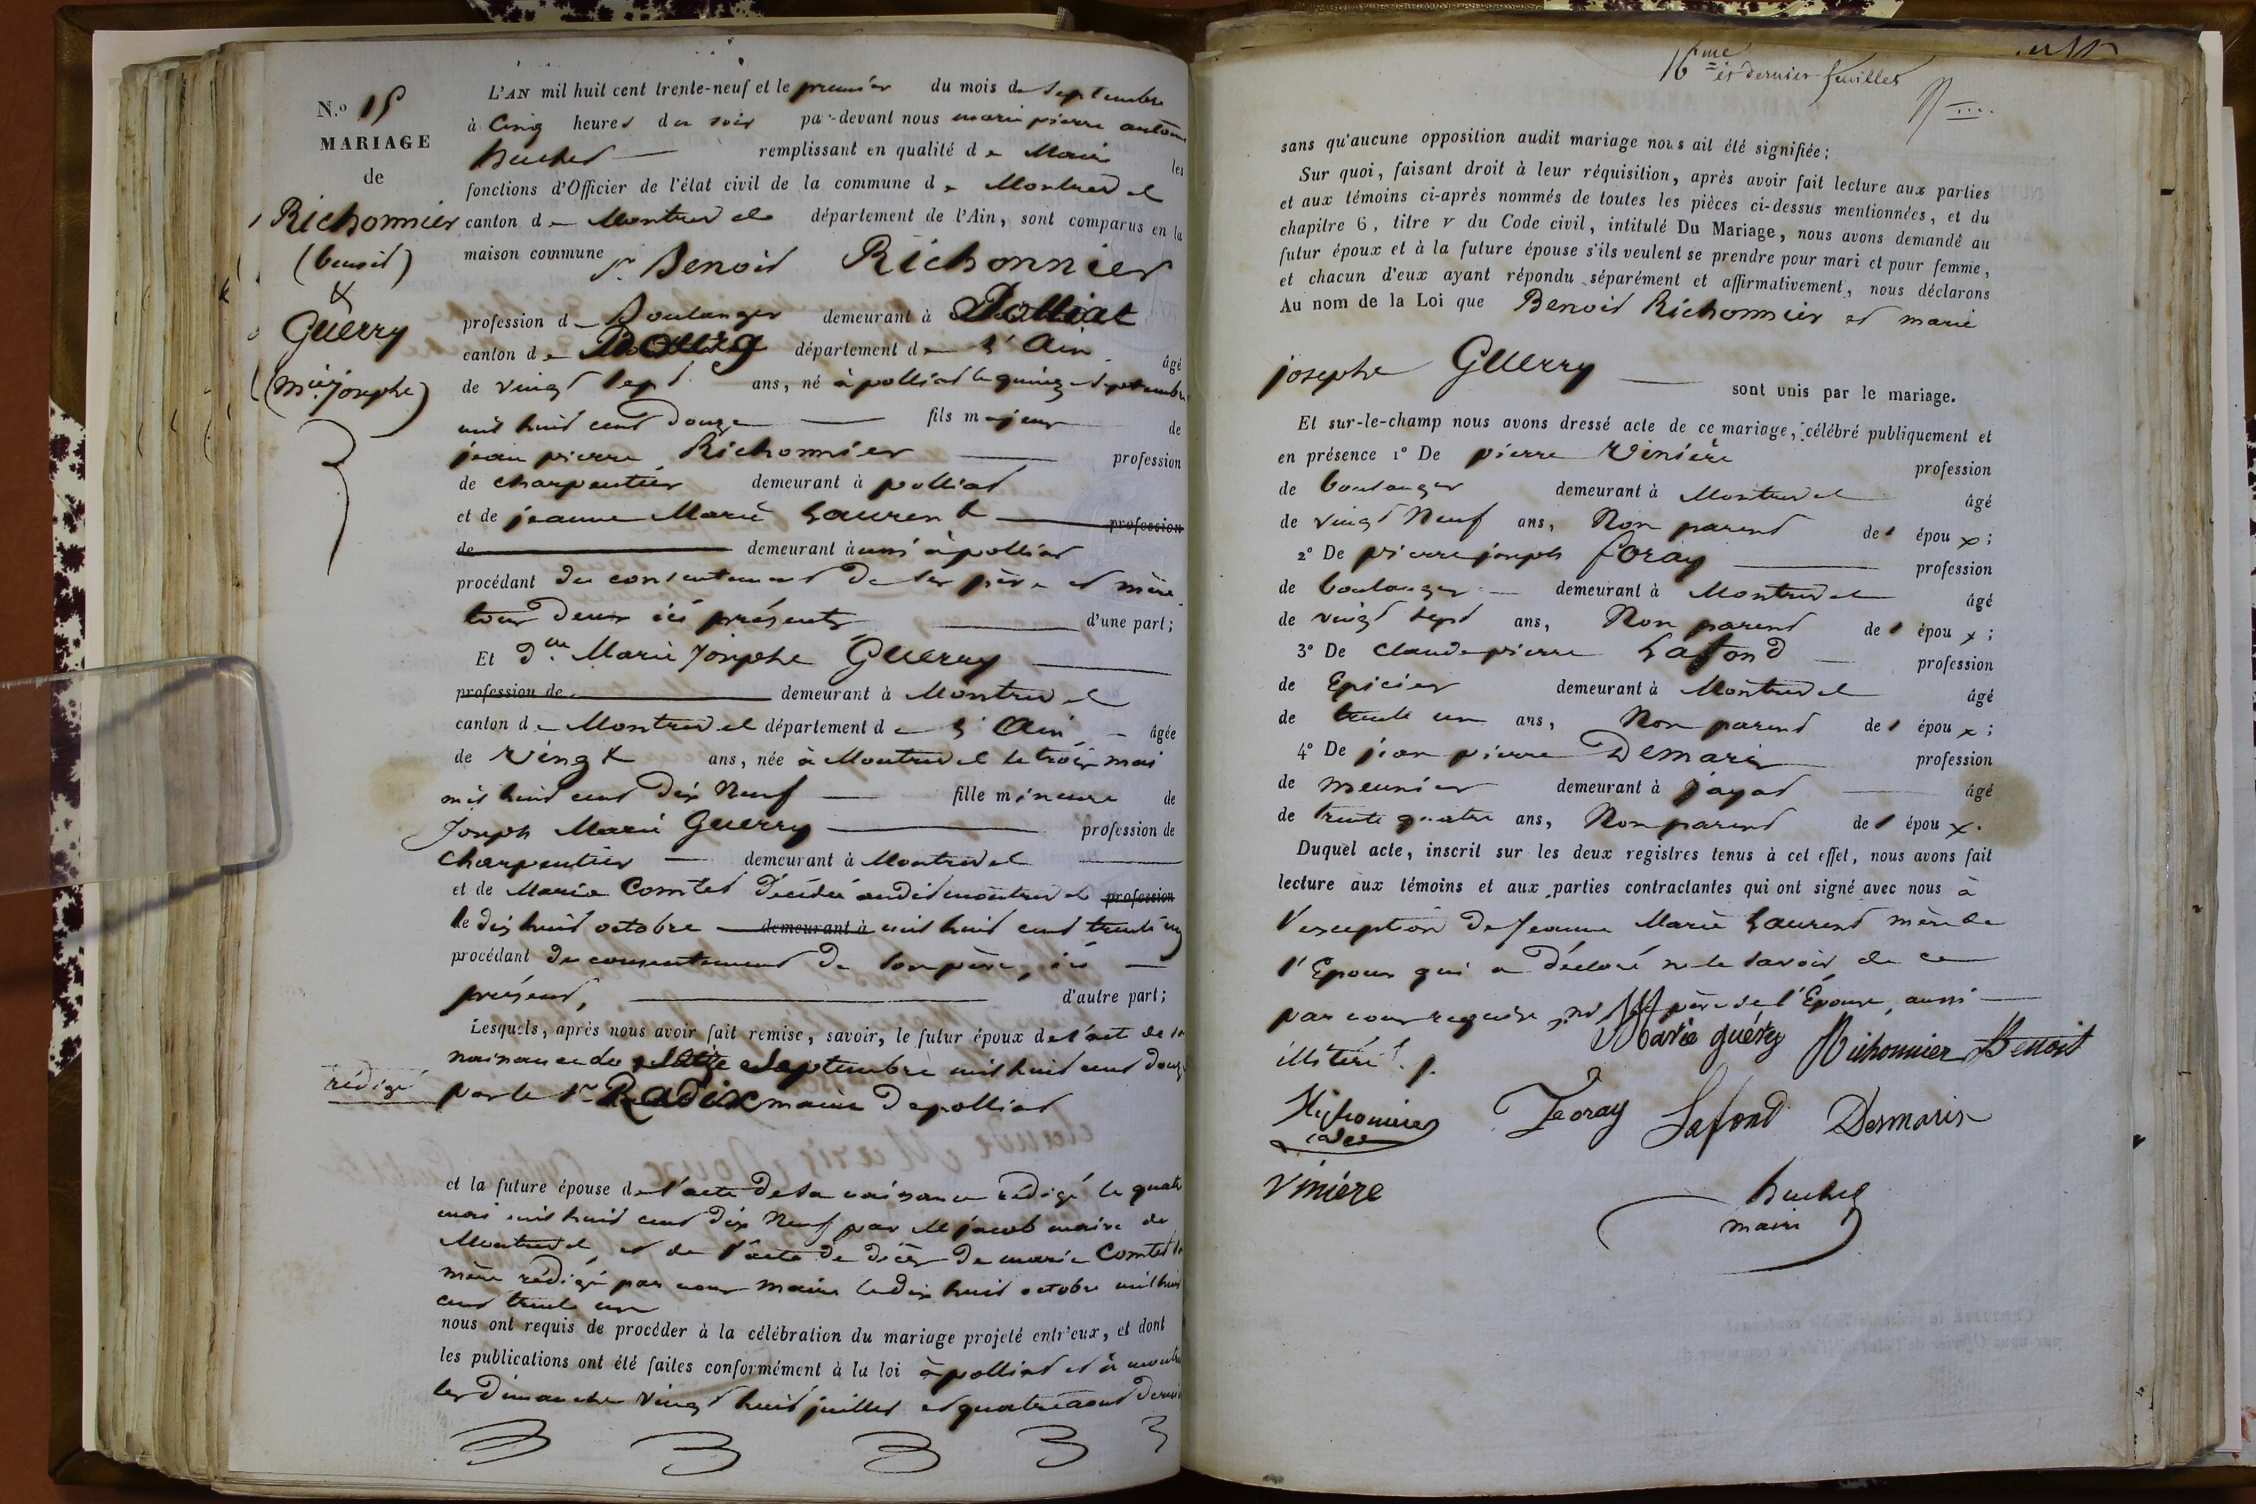 N.° 15
MARIAGE
de
Richonnier
(benoit)
&
Guerry
(Mie. josephe)
L'AN mil huit cent trente-neuf et le premier du mois de Septembre
à Cinq heures du soir par-devant nous marie pierre antoine
Buchet remplissant en qualité de Maire les
fonctions d'Officier de l'état civil de la commune de Montrevel
canton de Montrevel département de l'Ain, sont comparus en la
maison commune Sr. Benoit Richonnier
profession de Boulanger demeurant à Polliat
canton de Bourg département de L'Ain âgé
de vingt sept ans, né à polliat le quinze Septembre
mil huit cent douze fils majeur de
jean pierre Richonnier profession
de charpentier demeurant à polliat
et de jeanne Marie Laurent profession
de demeurant aussi à polliat
procédant du consentement de ses père et mère
tous deux ici présents d'une part;
Et Dlle. Marie Josephe Guerry
profession de demeurant à Montrevel
canton de Montrevel département de L'Ain âgée
de vingt ans, née à Montrevel le trois mai
mil huit cent dix Neuf fille mineure de
Joseph Marie Guerry profession de
charpentier demeurant à Montrevel
et de Marie Comtet décédée audit montrevel profession
le dix huit octobre demeurant à mil huit cent trente un
procédant du consentement de son père, ici
présent, d'autre part;
Lesquels, après nous avoir fait remise, savoir, le futur époux de l'act de sa
naissance du Septembre mil huit cent douze
rédigé par le Sr. Radix maire de polliat
et la future épouse de l'acte de sa naissance rédigé le quatre
mai mil huit cent dix Neuf par M jacob maire de
Montrevel, et de l'acte de décès de marie Comtet sa
mère rédigé par nous maire le dix huit octobre mil huit
cent trente un
nous ont requis de procéder à la célébration du mariage projeté entr'eux, et dont
les publications ont été faites conformément à la loi à polliat et à
les dimanche vingt huit juillet et quatre aout dernier
16me et dernier feuillet
sans qu'aucune opposition audit mariage nous ait été signifiée;
Sur quoi, faisant droit à leur réquisition, après avoir fait lecture aux parties
et aux témoins ci-après nommés de toutes les pièces ci-dessus mentionnées, et du
chapitre 6, titre v du Code civil, intitulé Du Mariage, nous avons demandé au
futur époux et à la future épouse s'ils veulent se prendre pour mari et pour femme,
et chacun d'eux ayant répondu séparément et affirmativement, nous déclarons
Au nom de la Loi que Benoit Richonnier et marie
josephe Guerry sont unis par le mariage.
Et sur-le-champ nous avons dressé acte de ce mariage, célébré publiquement et
en présence 1° De pierre Vinière profession
de boulanger demeurant à Montrevel âgé
de vingt Neuf ans, Non parent des époux;
2° De pierre joseph foray profession
de boulanger demeurant à Montrevel âgé
de vingt sept ans, Non parent des époux;
3° De Claude pierre Lafond profession
de Epicier demeurant à Montrevel âgé
de trente un ans, Non parent des époux;
4° De jean pierre Demaris profession
de meunier demeurant à jayat âgé
de trente quatre ans, Non parent des époux.
Duquel acte, inscrit sur les deux registres tenus à cet effet, nous avons fait
lecture aux témoins et aux parties contractantes qui ont signé avec nous à
l'exception de Jeanne Marie Laurent mère de
l'Epoux qui a déclaré ne le savoir de ce
par nous requise, père de l'Épouse, aussi
illitéré.
Marie guéry Richonnier Benoit
Richonnier
Foray Lafond Demaris
Viniére
Buchet
maire